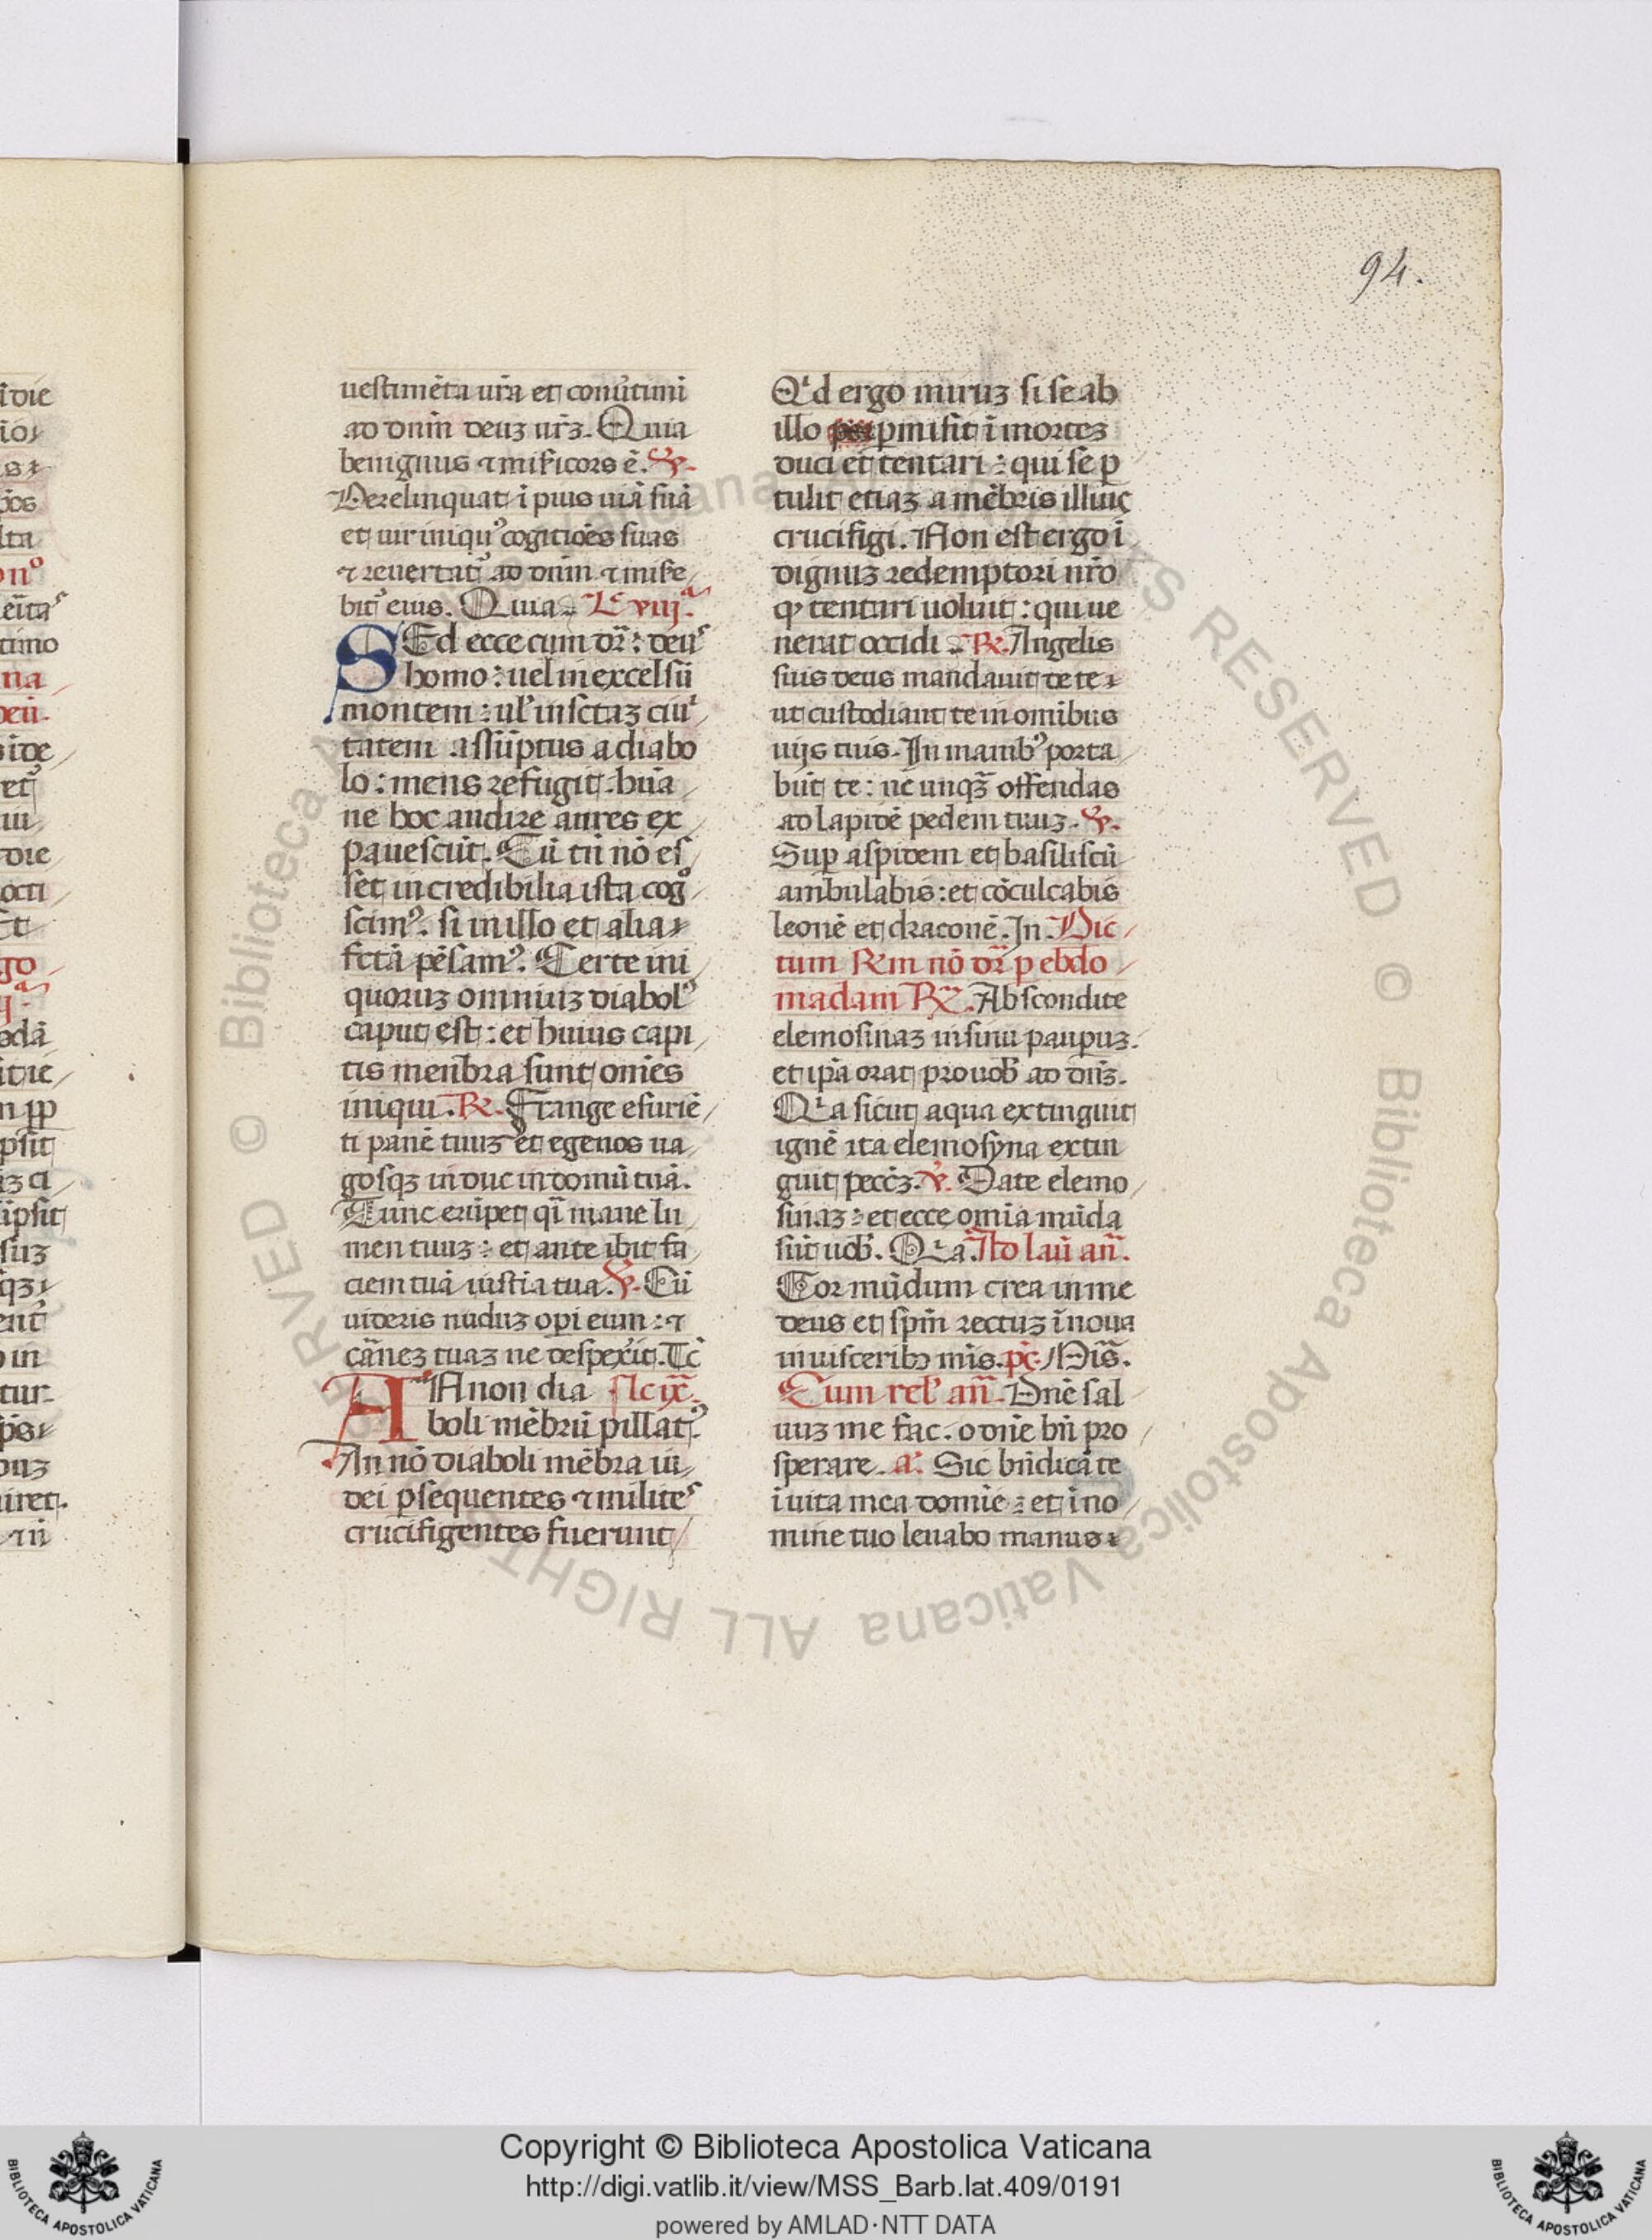 94.
uestimēta ur̄a et conu̓timi
ad dnm̄ deuz ur̄z. Quia
benignus ⁊ miẜicors ē. ℣.
Derelinquat īpius uiā suā
et uir iniquꝰ cogitiōēs suas
⁊ reuertat᷒ ad dnm̄ ⁊ mise
bit᷒ eius. Quia. L' viijᵃ.
SEd ecce cum dr̄: deus
homo: uel in excelsū
montem: ul' in sctaz ciui
tatem assūptus a diabo
lo: mens refugit. hūa
ne hoc audire aures ex
pauescūt. Cū tn̄ nō es
set incredibilia ista cog
scimꝰ. si in illo et alia
fctā pēsamꝰ. Certe ini
quoruz omniuz diabolꝰ
caput est: et huius capi
tis menbra sunt omēs
iniqui. ℟. Frange esuriē
ti panē tuuz et egenos ua
gosqz induc in domū tuā.
Tunc erūpet qī mane lu
men tuuz: et ante ibit fa
ciem tuā iustia tua. ℣. Cū
uideris nuduz opi eum: ⁊
cānez tuaz ne despexi̓t. Tc̄
AN non dia Lc ix.
boli mēbrū pillatꝰ.
An nō diaboli mēbra iu
dei ꝑsequentes ⁊ milites
crucifigentes fuerunt
Qⁱd ergo miruz si se ab
illo ꝑmisit ī mortez
duci et tentari: qui se ꝑ
tulit etiaz a mēbris illiuc
crucifigi. Non est ergo ī
dignuz redemptori nr̄o
ꝙ tentari uoluit: qui ue
nerat occidi. ℟. Angelis
suis deus mandauit de te
ut custodiant te in omibus
uijs tuis. In manibꝰ porta
būt te: ne unqz̄ offendas
ad lapidē pedem tuuz. ℣.
Suꝑ aspidem et basiliscū
ambulabis: et cōculcabis
leonē et draconē. In. Dic
tum Rm nō dr̄ p ebdo
madam ℟. Abscondite
elemosinaz in sinu pauꝑuz.
et ip̄a orat pro uob̓ ad dn̄z.
Qⁱa sicut aqua extinguit
ignē ita elemosyna extin
guit pecc̄z. ℣. Date elemo
sinaz: et ecce omia mūda
sūt uob̓. Qⁱa. Ad lau̓ an̄.
Cor mūdum crea in me
deus et spm̄ rectuz īnoua
in uisceribꝫ mīs. pc̄. Mis̄.
Cum rel' an̄. Dnē sal
uuz me fac. o dnē bn̄ pro
sperare. a. Sic bn̄dicā te
i uita mea domie: et i no
mine tuo leuabo manus
Copyright © Biblioteca Apostolica Vaticana
http://digi.vatlib.it/view/MSS_Barb.lat.409/0191
powered by AMLAD·NTT DATA